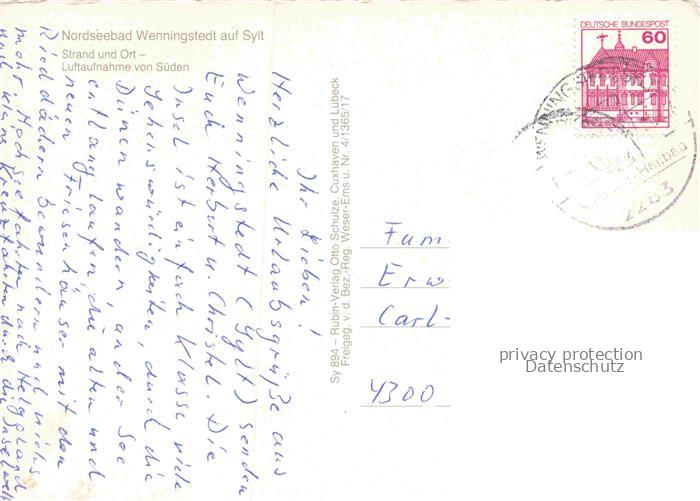 Nordseebad Wenningstedt auf Sylt
Strand und Ort –
Luftaufnahme von Süden
DEUTSCHE BUNDESPOST
60
WENNINGSTEDT
2283
Sy 894 – Rubin-Verlag Otto Schulze, Cuxhaven und Lübeck
Freigeg. v. d. Bez.-Reg. Weser-Ems u. Nr. 4/1365/17
Ihr Lieben!
Herzliche Urlaubsgrüße aus
Wenningstedt (Sylt) senden
Euch Herbert u. Christel. Die
Insel ist einfach Klasse, viele
Sehenswürdigkeiten, durch die
Dünen wandern, an der See
entlang laufen, die alten und
neuen Friesenhäuser mit den
Rieddächern bewundern und vieles
mehr. Hochseefahrten nach Helgoland
und kleine Kreuzfahrten durch die Inselwelt
Fam.
Erw
Carl-
4300
privacy protection
Datenschutz